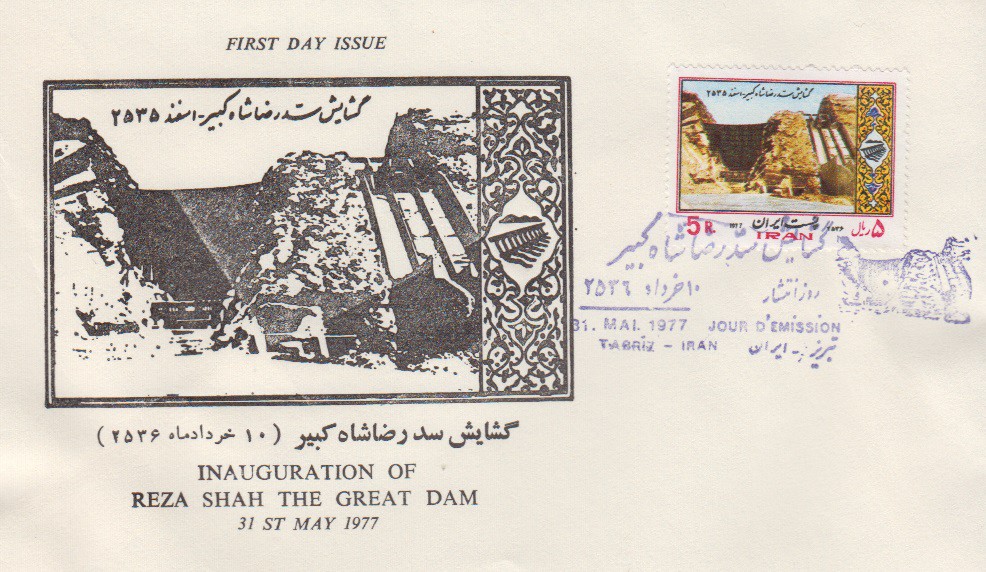 FIRST DAY ISSUE
گشایش سد رضاشاه کبیر - اسفند ۲۵۳۵
گشایش سد رضاشاه کبیر (۱۰ خردادماه ۲۵۳۶)
INAUGURATION OF
REZA SHAH THE GREAT DAM
31 ST MAY 1977
گشایش سد رضاشاه کبیر - اسفند ۲۵۳۵
5 R. 1977 پست ایران ۲۵۳۶ ۵ ریال
IRAN
گشایش سد رضاشاه کبیر
روز انتشار ۱۰ خرداد ۲۵۳۶
31. MAI. 1977 JOUR D'EMISSION
TABRIZ - IRAN تبریز - ایران